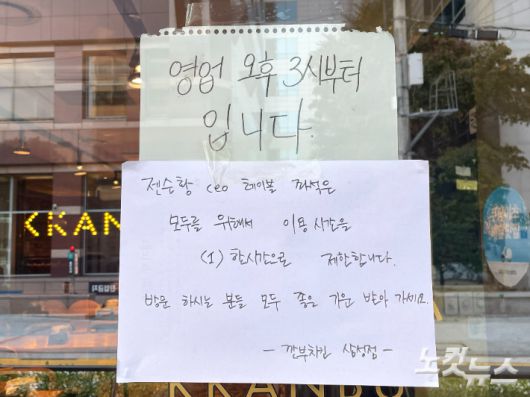 영업 오후 3시부터
입니다.
젠슨황 ceo 테이블 좌석은
모두를 위해서 이용시간을
(1) 한시간으로 제한합니다.
방문 하시는 분들 모두 좋은 기운 받아 가세요.
- 깐부치킨 삼성점 -
KKANBU
노컷뉴스